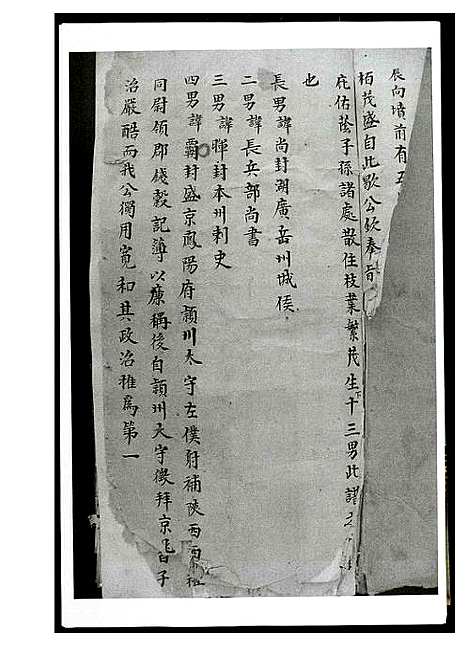 辰向墳前有五
栢茂盛自此歇公欽奉旨
庇佑蔭子孫諸處散住枝業繁茂生下十三男此諱之
也
長男諱尚封湖廣岳州城侯
二男諱長兵部尚書
三男諱暉封本州刺史
四男諱霸封盛京鳳陽府頴川太守左僕射補陝西
同尉領郡錢穀記簿以廉稱後自頴州太守徵拜京兆尹子
治嚴酷而我公獨用寬和其政治稚為第一